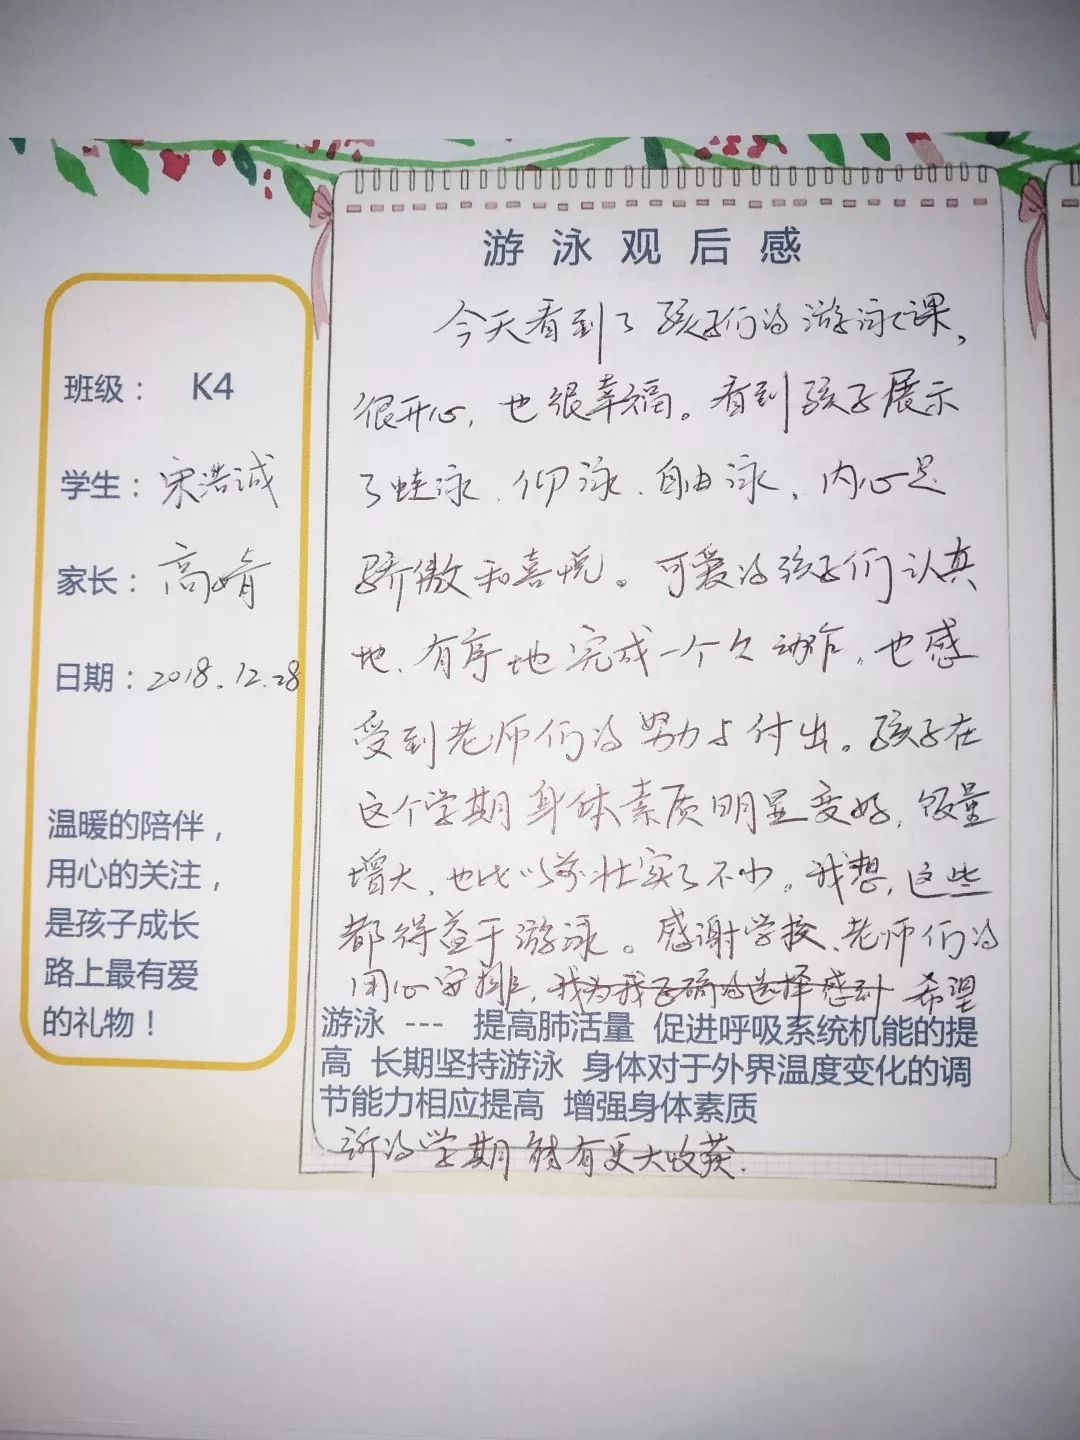 游泳观后感
班级： K4
学生：宋浩诚
家长：高婧
日期：2018.12.28
温暖的陪伴，
用心的关注，
是孩子成长
路上最有爱
的礼物！
今天看到了孩子们的游泳课，
很开心，也很幸福。看到孩子展示
了蛙泳、仰泳、自由泳，内心是
骄傲和喜悦。可爱的孩子们认真
地、有序地完成一个个动作，也感
受到老师们的努力与付出。孩子在
这个学期身体素质明显变好，饭量
增大，也比以前壮实了不少。我想，这些
都得益于游泳。感谢学校、老师们的
用心安排，我为我正确的选择感到 希望
游泳 --- 提高肺活量 促进呼吸系统机能的提
高 长期坚持游泳 身体对于外界温度变化的调
节能力相应提高 增强身体素质
新的学期能有更大收获.